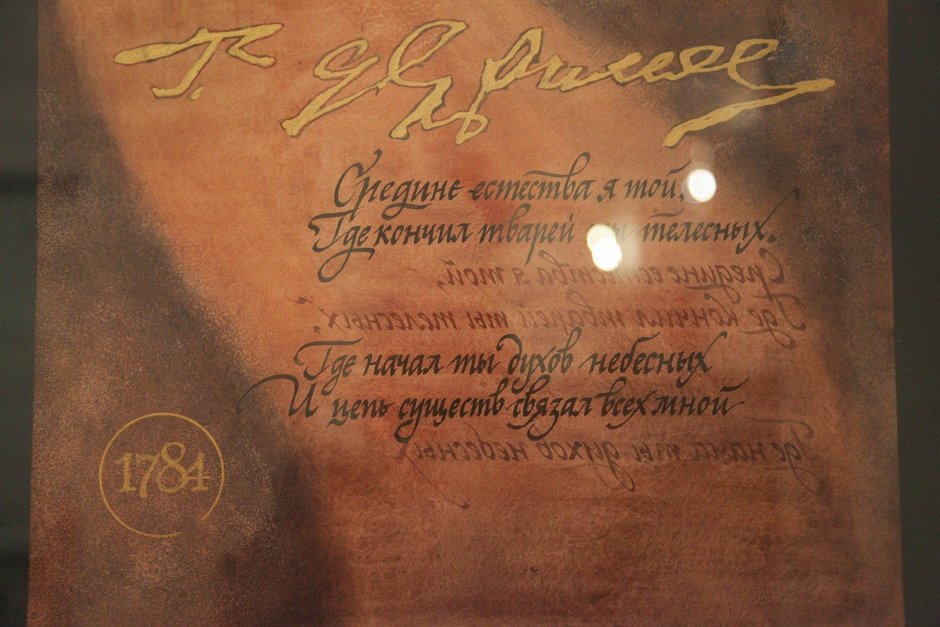 Средине естества я той,
Где кончил тварей ты телесных,
Средине естества я той,
Где кончил тварей ты телесных,
Где начал ты духов небесных
И цепь существ связал всех мной
Где начал ты духов небесных
1784